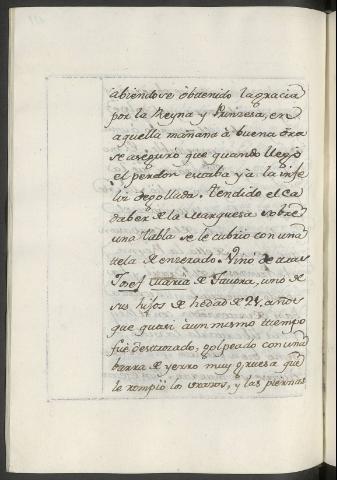 abiendose obtenido la gracia
por la Reyna y Prinzesa, en
aquella mañana à buena ora
se aseguró que quando llegó
el perdon estaba ya la infe
liz degollada. Tendido el Ca
daber de la Marquesa sobre
una tabla se le cubrio con una
tela de enzerado. Vino detras
Josef Maria de Tavora, uno de
sus hijos de hedad de 21, años
que quasi à un mismo tiempo
fue destrozado, golpeado con una
barra de yerro muy gruesa que
le rompiò los brazos, y las piernas